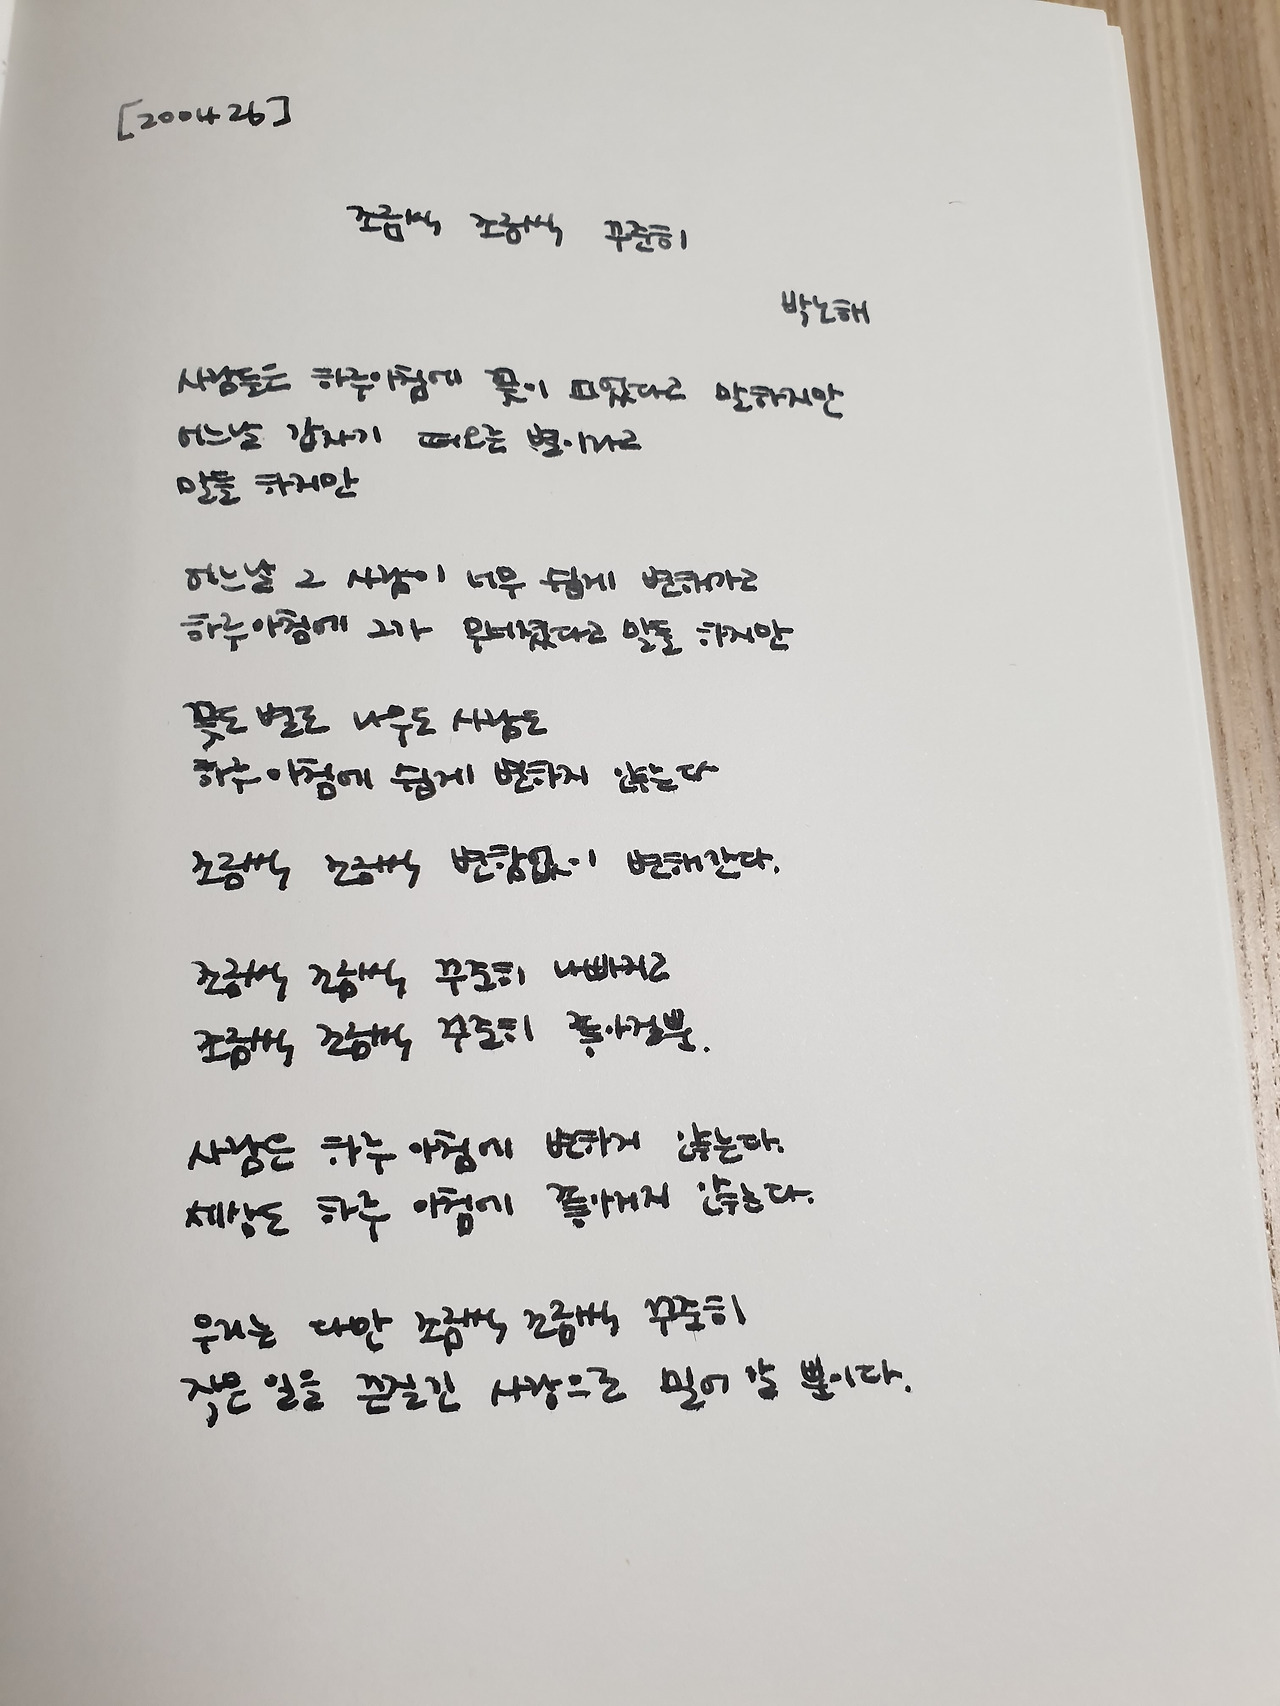 [200426]
조금씩 조금씩 꾸준히
박노해
사람들은 하루아침에 꽃이 피었다고 말하지만
어느날 갑자기 떠오른 별이라고
말들 하지만
어느날 그 사람이 너무 쉽게 변해가고
하루아침에 그가 무너졌다고 말들 하지만
꽃도 별도 나무도 사람도
하루 아침에 쉽게 변하지 않는다
조금씩 조금씩 변함없이 변해간다.
조금씩 조금씩 꾸준히 나빠지고
조금씩 조금씩 꾸준히 좋아질뿐.
사람은 하루 아침에 변하지 않는다.
세상도 하루 아침에 좋아지지 않는다.
우리는 다만 조금씩 조금씩 꾸준히
작은 일을 끈질긴 사랑으로 밀어 갈 뿐이다.